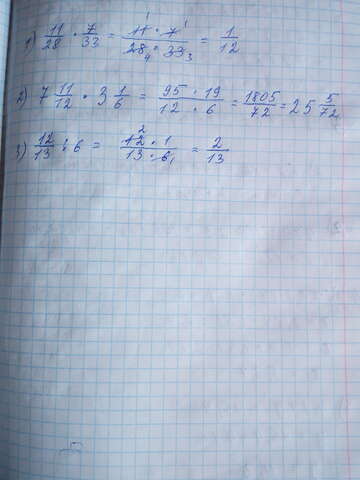 1) 11/28 · 7/33 = 11 · 7 / 28 · 33 = 1/12
2) 7 11/12 · 3 1/6 = 95 · 19 / 12 · 6 = 1805/72 = 25 5/72
3) 12/13 : 6 = 12 · 1 / 13 · 6 = 2/13